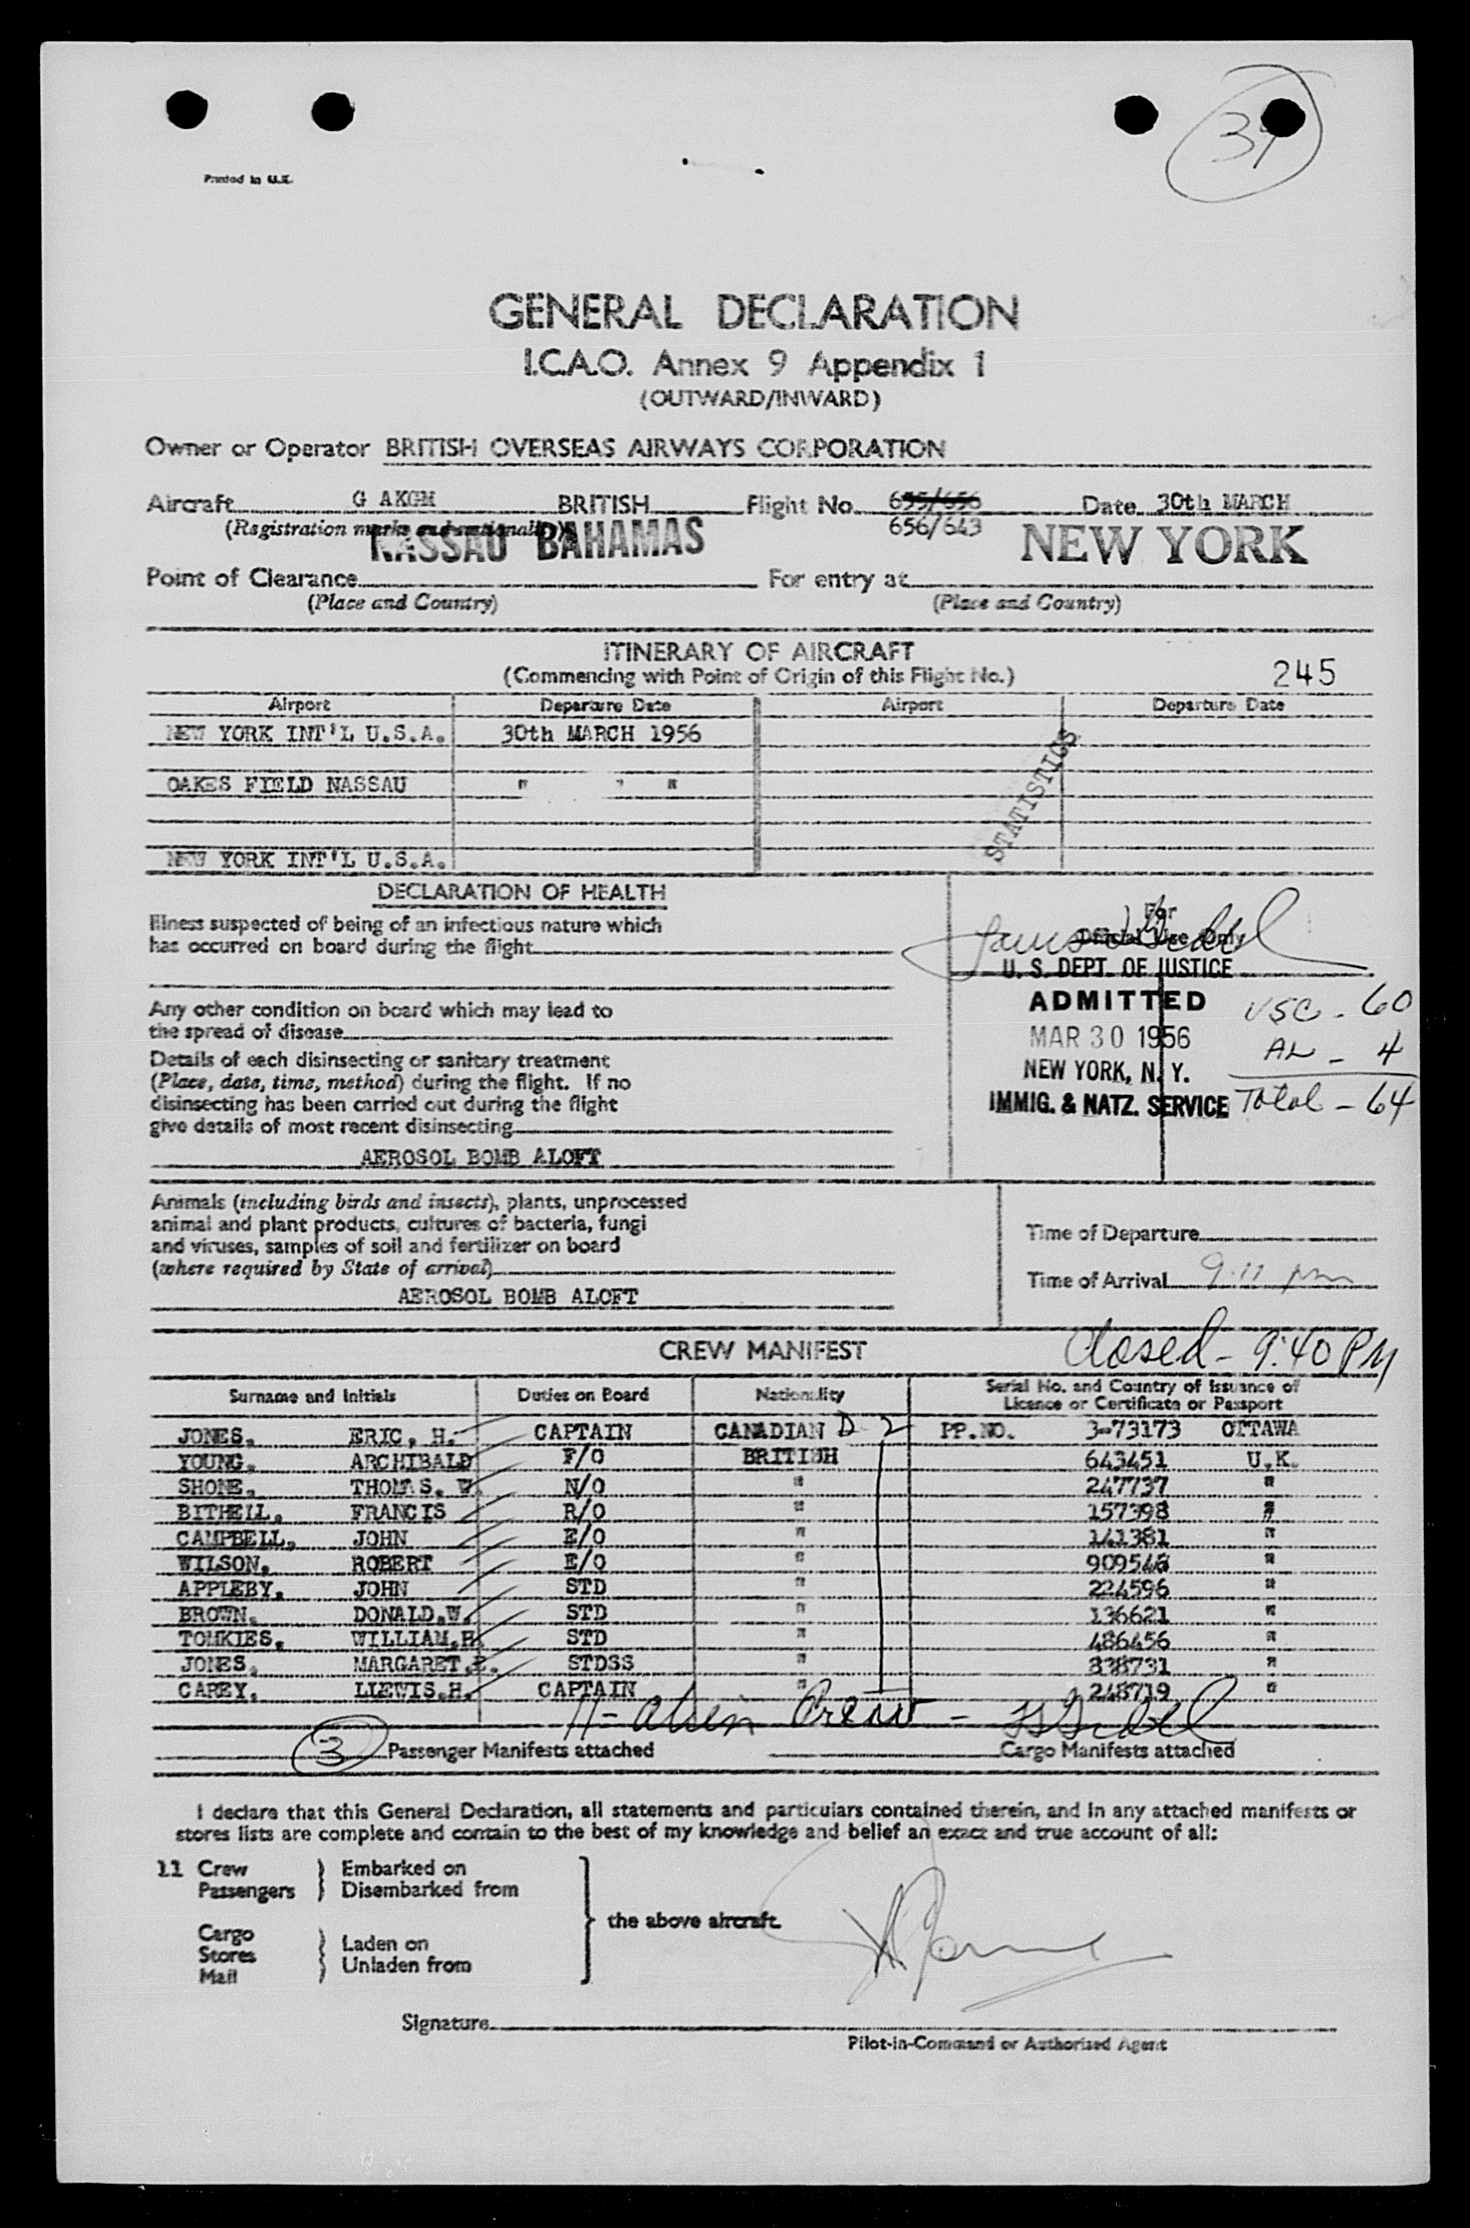 39
Printed in U.K.
GENERAL DECLARATION
I.C.A.O. Annex 9 Appendix 1
(OUTWARD/INWARD)
Owner or Operator BRITISH OVERSEAS AIRWAYS CORPORATION
Aircraft G AKGM BRITISH Flight No. 655/656 Date 30th MARCH
(Registration marks and nationality) 656/643
NASSAU BAHAMAS NEW YORK
Point of Clearance For entry at
(Place and Country) (Place and Country)
ITINERARY OF AIRCRAFT
(Commencing with Point of Origin of this Flight No.) 245
Airport Departure Date Airport Departure Date
NEW YORK INT'L U.S.A. 30th MARCH 1956
STATISTICS
OAKES FIELD NASSAU " " "
NEW YORK INT'L U.S.A.
DECLARATION OF HEALTH
For
Official Use Only
Illness suspected of being of an infectious nature which
has occurred on board during the flight
U. S. DEPT. OF JUSTICE
ADMITTED USC - 60
Any other condition on board which may lead to
the spread of disease
MAR 30 1956 AL - 4
Details of each disinsecting or sanitary treatment
(Place, date, time, method) during the flight. If no
NEW YORK, N. Y.
disinsecting has been carried out during the flight
IMMIG. & NATZ. SERVICE Total - 64
give details of most recent disinsecting
AEROSOL BOMB ALOFT
Animals (including birds and insects), plants, unprocessed
animal and plant products, cultures of bacteria, fungi
and viruses, samples of soil and fertilizer on board
(where required by State of arrival)
Time of Departure
Time of Arrival 9:11 pm
AEROSOL BOMB ALOFT
CREW MANIFEST Closed - 9:40 PM
Surname and Initials Duties on Board Nationality Serial No. and Country of Issuance of
Licence or Certificate or Passport
JONES. ERIC. H. CAPTAIN CANADIAN D 2 PP.NO. 3-73173 OTTAWA
YOUNG. ARCHIBALD F/O BRITISH 643451 U.K.
SHONE. THOMAS. W. N/O " 247737 "
BITHELL. FRANCIS R/O " 157398 "
CAMPBELL. JOHN E/O " 141381 "
WILSON. ROBERT E/O " 909546 "
APPLEBY. JOHN STD " 224596 "
BROWN. DONALD.W. STD " 136621 "
TOMKIES. WILLIAM.H. STD " 486456 "
JONES. MARGARET.E. STDSS " 838731 "
CAREY. LLEWIS.H. CAPTAIN " 248719 "
11 - alien Crew -
3 Passenger Manifests attached Cargo Manifests attached
I declare that this General Declaration, all statements and particulars contained therein, and in any attached manifests or
stores lists are complete and contain to the best of my knowledge and belief an exact and true account of all:
11 Crew Embarked on
Passengers Disembarked from
the above aircraft.
Cargo
Stores Laden on
Mail Unladen from
Signature
Pilot-in-Command or Authorised Agent